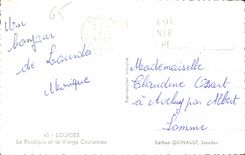 65
Un
bonjour
de Lourdes
Monique
Mademoiselle
Claudine
à Aveluy par Albert
Somme
45 - LOURDES
La Basilique et la Vierge Couronnée
Edition QUINAULT, Lourdes